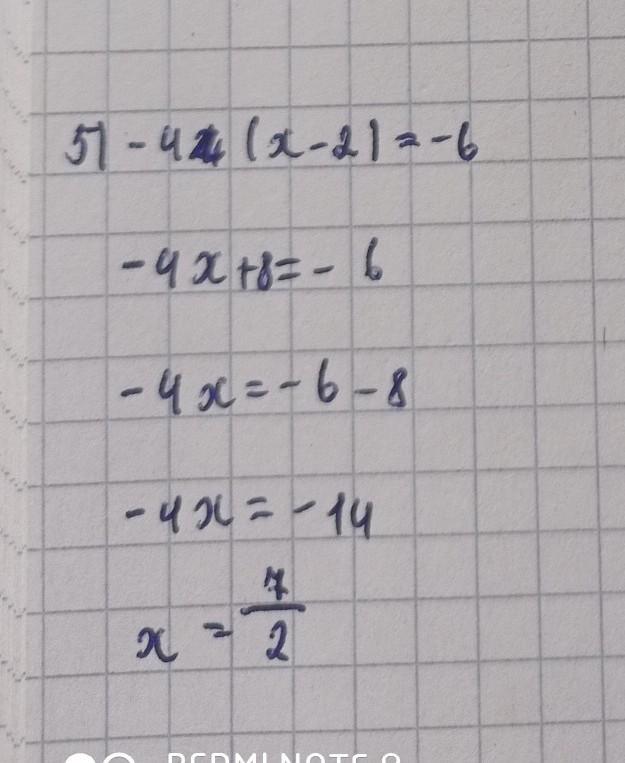 5) -4 (x-2) = -6
-4x+8=- 6
-4x=-6-8
-4x=-14
x = 7/2
REDMI NOTE 8